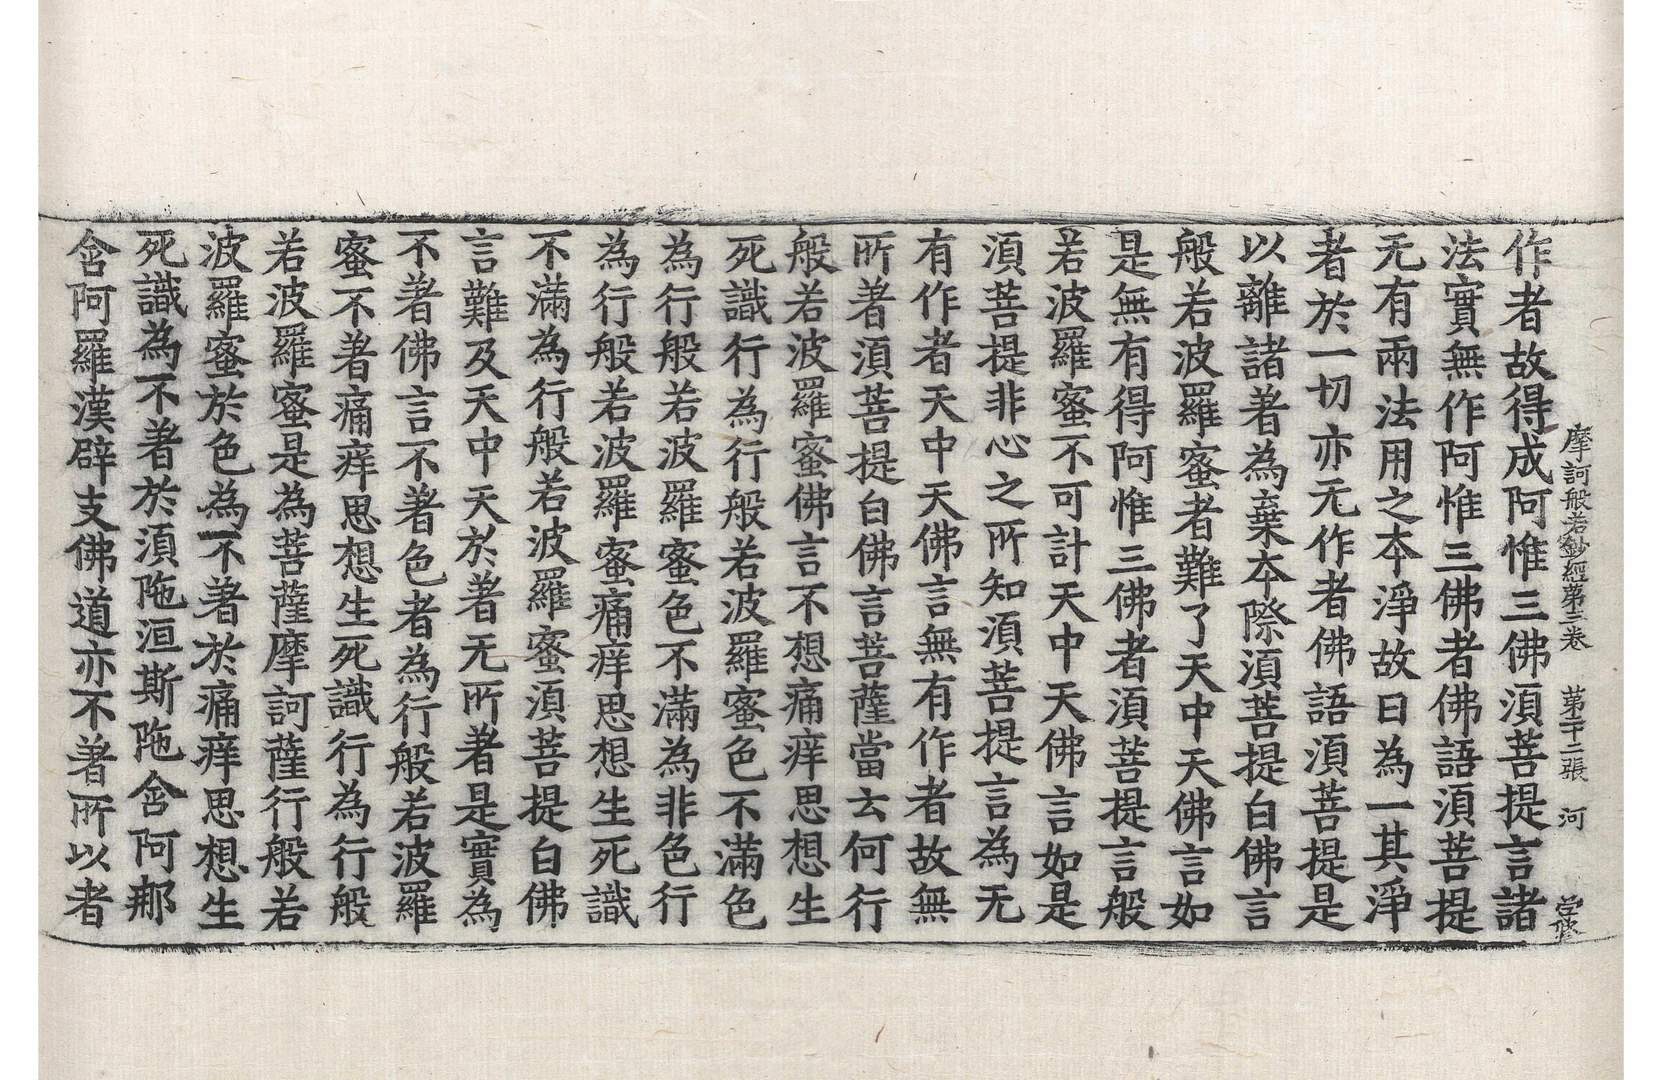 摩訶般若鈔經第三卷　第二十二張　河
作者故得成阿惟三佛湏菩提言諸
法實無作阿惟三佛者佛語湏菩提
无有兩法用之本淨故曰為一其淨
者於一切亦无作者佛語湏菩提是
以離諸著為棄本際湏菩提白佛言
般若波羅蜜者難了天中天佛言如
是無有得阿惟三佛者湏菩提言般
若波羅蜜不可計天中天佛言如是
湏菩提非心之所知湏菩提言為无
有作者天中天佛言無有作者故無
所著湏菩提白佛言菩薩當云何行
般若波羅蜜佛言不想痛痒思想生
死識行為行般若波羅蜜色不滿色
為行般若波羅蜜色不滿為非色行
為行般若波羅蜜痛痒思想生死識
不滿為行般若波羅蜜湏菩提白佛
言難及天中天於著无所著是實為
不著佛言不著色者為行般若波羅
蜜不著痛痒思想生死識行為行般
若波羅蜜是為菩薩摩訶薩行般若
波羅蜜於色為不著於痛痒思想生
死識為不著於湏陁洹斯陁含阿那
含阿羅漢辟支佛道亦不著所以者